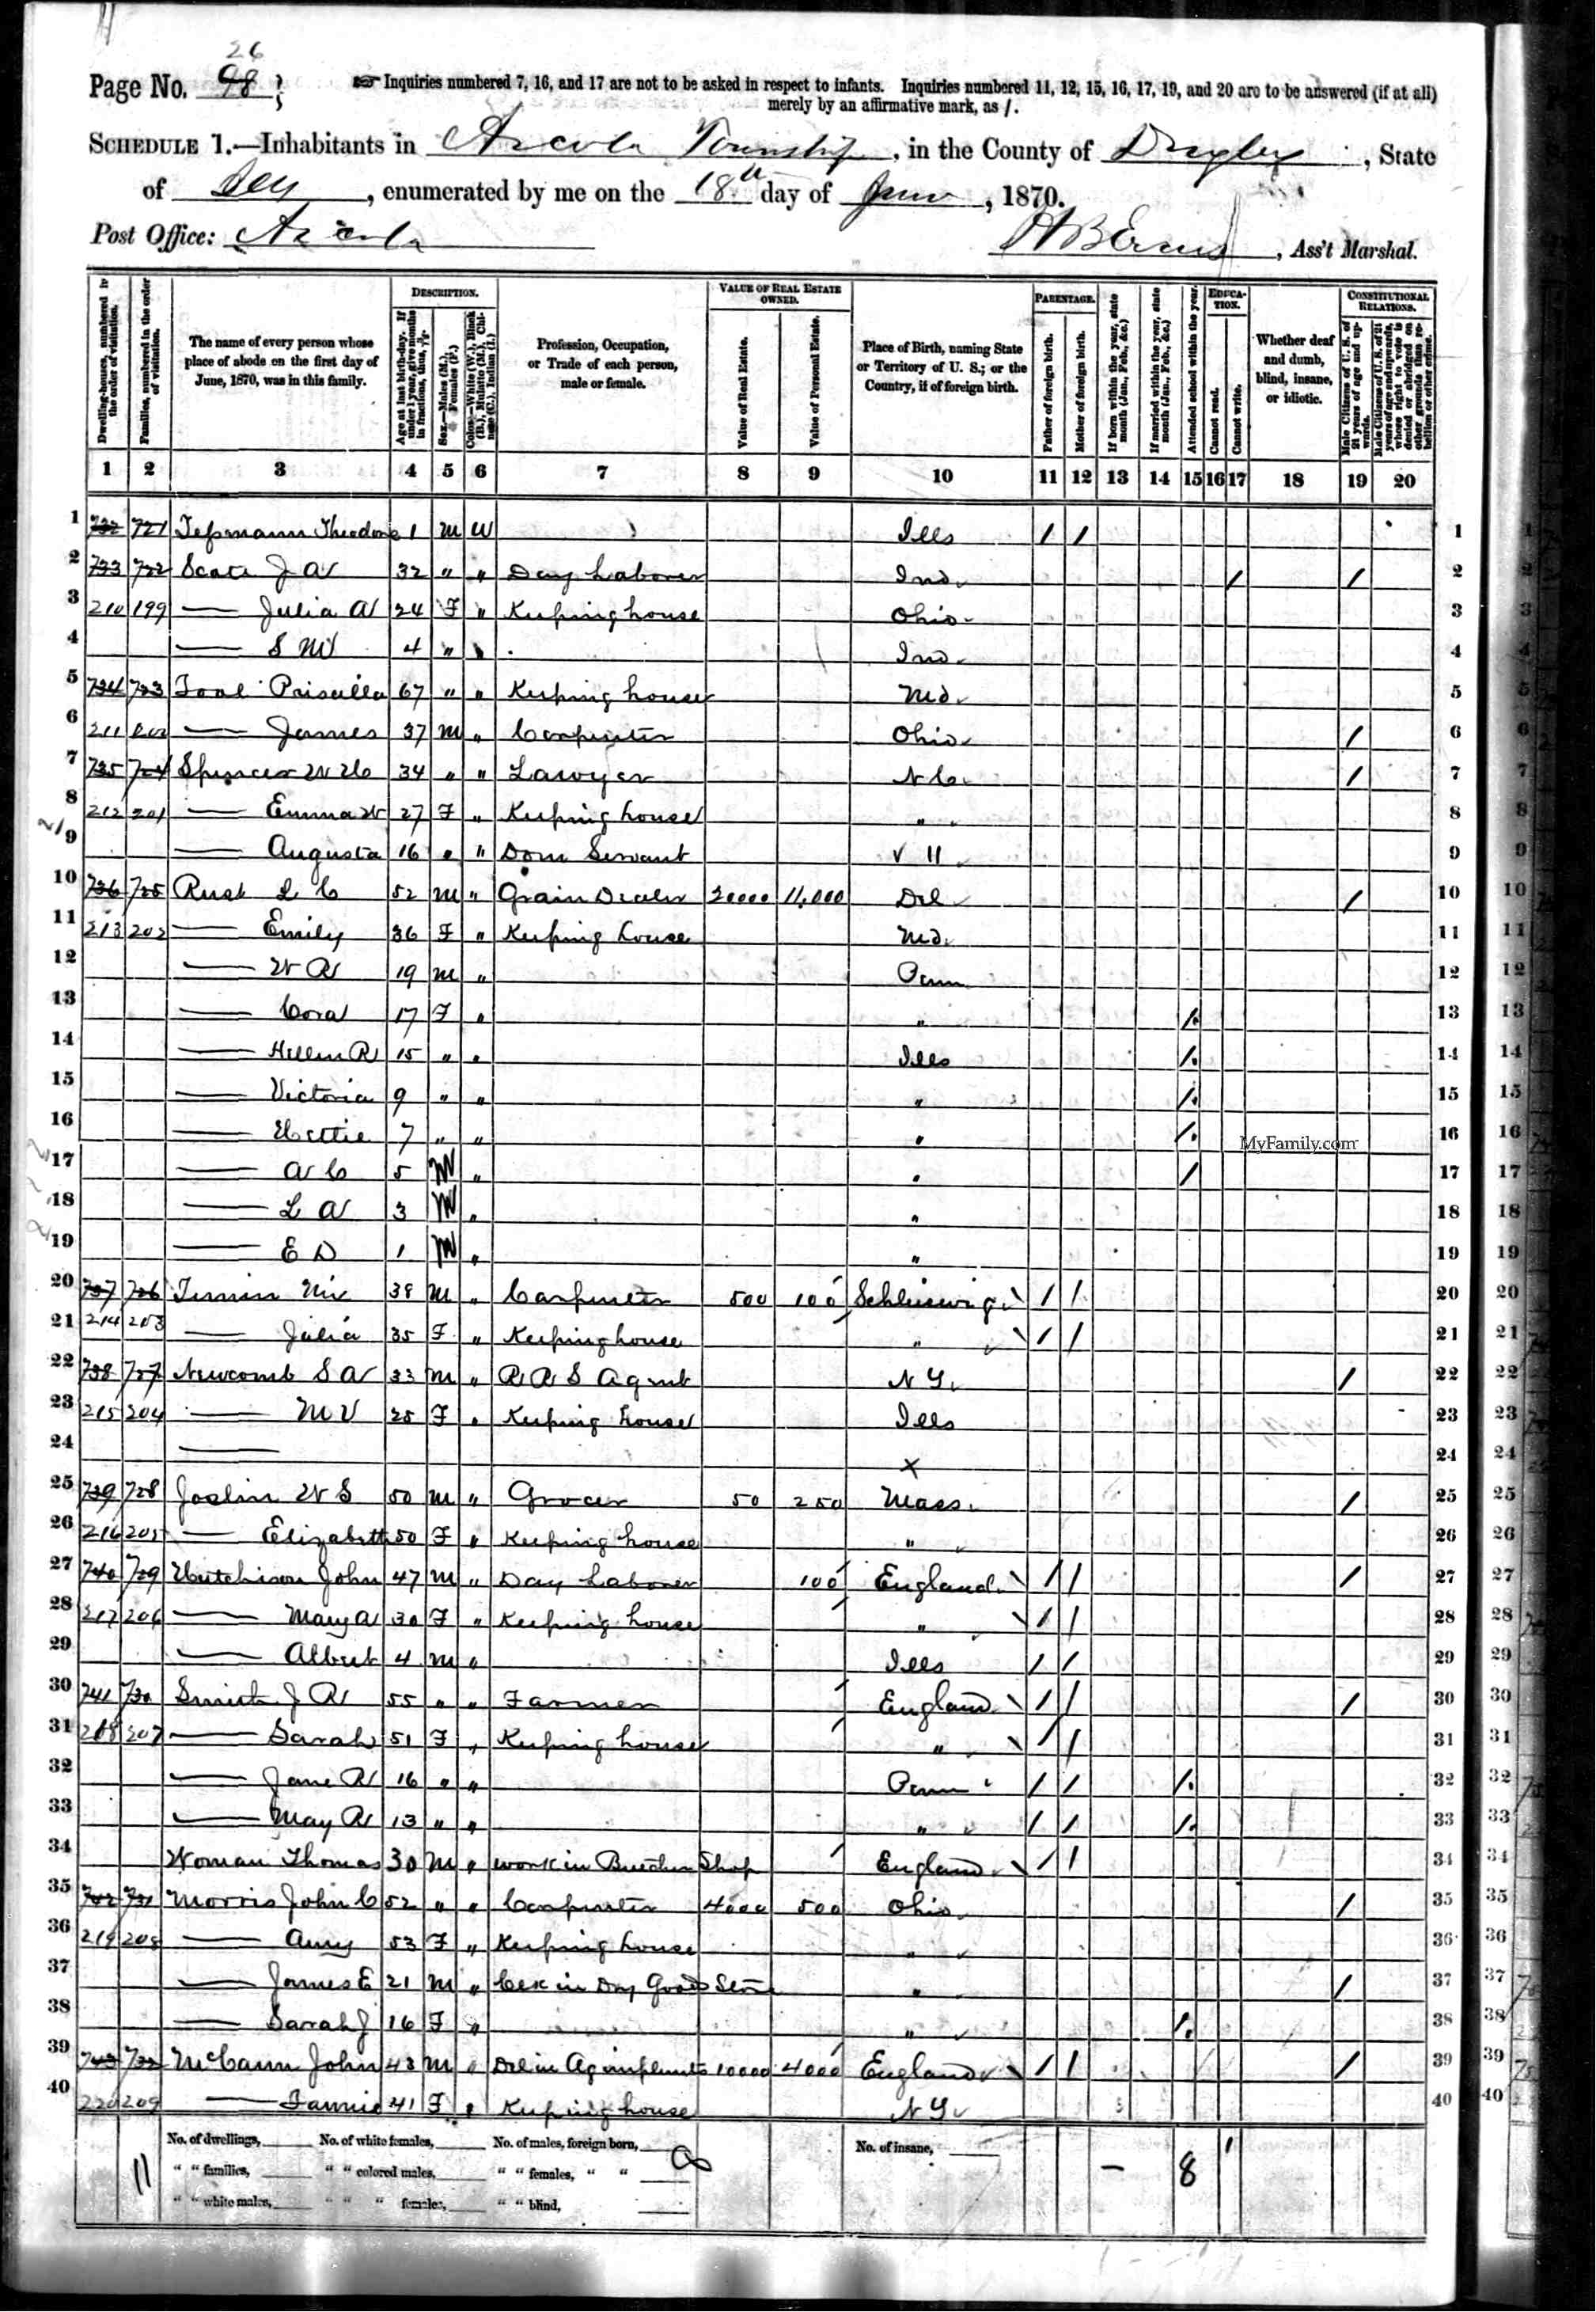 26
Page No. 98
Inquiries numbered 7, 16, and 17 are not to be asked in respect to infants. Inquiries numbered 11, 12, 15, 16, 17, 19, and 20 are to be answered (if at all)
merely by an affirmative mark, as /.
SCHEDULE 1.—Inhabitants in Arcola Township, in the County of Douglas, State
of Ills, enumerated by me on the 18th day of June, 1870.
Post Office: Arcola
Ass't Marshal.
Dwelling-houses, numbered in the order of visitation.
Families, numbered in the order of visitation.
The name of every person whose place of abode on the first day of June, 1870, was in this family.
DESCRIPTION.
Age at last birth-day. If under 1 year, give months in fractions, thus, 3/12.
Sex.—Males (M.), Females (F.)
Color.—White (W.), Black (B.), Mulatto (M.), Chinese (C.), Indian (I.)
Profession, Occupation, or Trade of each person, male or female.
VALUE OF REAL ESTATE OWNED.
Value of Real Estate.
Value of Personal Estate.
Place of Birth, naming State or Territory of U. S.; or the Country, if of foreign birth.
PARENTAGE.
Father of foreign birth.
Mother of foreign birth.
If born within the year, state month (Jan., Feb., &c.)
If married within the year, state month (Jan., Feb., &c.)
Attended school within the year.
EDUCATION.
Cannot read.
Cannot write.
Whether deaf and dumb, blind, insane, or idiotic.
CONSTITUTIONAL RELATIONS.
Male Citizens of U. S. of 21 years of age and upwards.
Male Citizens of U. S. of 21 years of age and upwards, whose right to vote is denied or abridged on other grounds than rebellion or other crime.
1 2 3 4 5 6 7 8 9 10 11 12 13 14 15 16 17 18 19 20
1 732 721 Tessmann Theodore 1 M W Ills / / 1
2 733 722 J A 32 " " Day Laborer Ind / / 2
3 210 199 — Julia A 24 F " Keeping house Ohio 3
4 — S M 4 " " Ind 4
5 734 723 Priscilla 67 " " Keeping house Md 5
6 211 200 — James 37 M " Carpenter Ohio / 6
7 735 724 Spencer 34 " " Lawyer N C / 7
8 212 201 — Emma W 27 F " Keeping house " 8
9 — Augusta 16 " " Dom Servant " 9
10 736 725 Rust L C 52 M " Grain Dealer 20000 11,000 Del / 10
11 213 202 — Emily 36 F " Keeping house Md 11
12 — W R 19 M " Penn 12
13 — Cora 17 F " " / 13
14 — Hellen R 15 " " Ills / 14
15 — Victoria 9 " " " / 15
16 — Hettie 7 " " " / 16
MyFamily.com
17 — A C 5 M " " / 17
18 — L A 3 M " " 18
19 — E D 1 M " " 19
20 737 726 38 M " Carpenter 500 100 Schleiswig / / 20
21 214 203 — Julia 35 F " Keeping house " / / 21
22 738 727 Newcomb S A 33 M " R R S Agent N Y / 22
23 215 204 — M V 25 F " Keeping house Ills 23
24 — x 24
25 739 728 Joslin W S 50 M " Grocer 50 250 Mass / 25
26 216 205 — Elizabeth 50 F " Keeping house " 26
27 740 729 Hutchison John 47 M " Day Laborer 100 England / / / 27
28 217 206 — Mary A 30 F " Keeping house " / / 28
29 — Albert 4 M " Ills / / 29
30 741 730 Smith J R 55 " " Farmer England / / / 30
31 218 207 — Sarah 51 F " Keeping house " / / 31
32 — Jane R 16 " " Penn / / / 32
33 — May R 13 " " " / / / 33
34 Woman Thomas 30 M " work in Butcher Shop England / / 34
35 742 731 Morris John C 52 " " Carpenter 4000 500 Ohio / 35
36 219 208 — Amy 53 F " Keeping house " 36
37 — James E 21 M " Clek in Dry Goods Store " / 37
38 — Sarah J 16 F " " / 38
39 743 732 McCann John 48 M " Del in Ag implents 10000 4000 England / / / 39
40 220 209 — Fannie 41 F " Keeping house N Y 40
No. of dwellings, No. of white females, No. of males, foreign born, No. of insane,
11 " " families, " " colored males, " " females, " " — 8 1
" " white males, " " " females, " " blind,